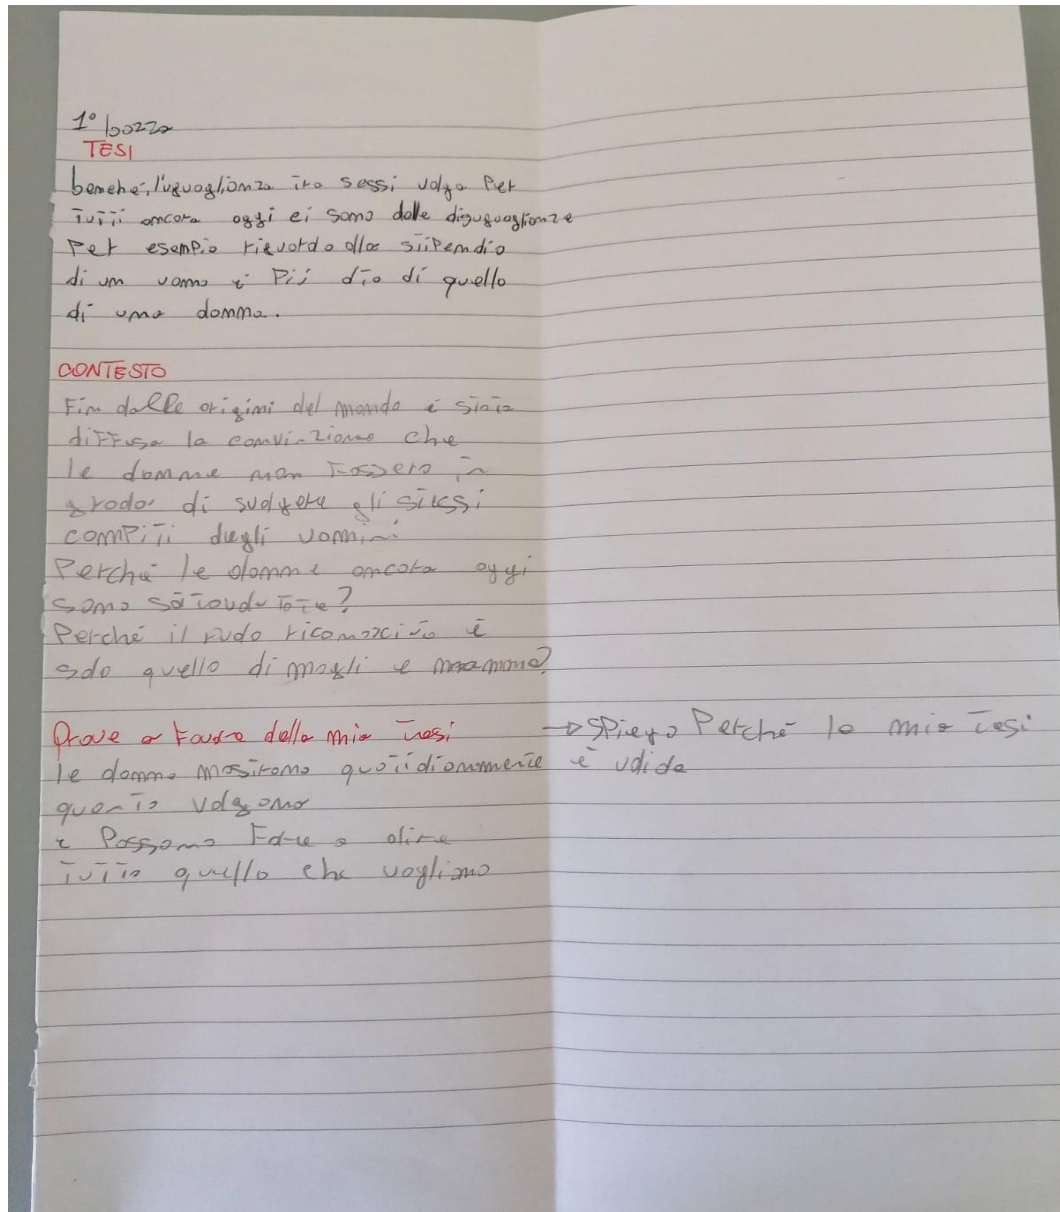 1° bozza
TESI
benché, l'uguaglianza tra sessi valga Per
tutti ancora oggi ci sono delle disuguaglianze
Per esempio riguardo allo stipendio
di un uomo è Più alto di quello
di una donna.
CONTESTO
Fin dalle origini del mondo è stata
diffusa la convinzione che
le donne non fossero in
grado di svolgere gli stessi
compiti degli uomini
Perché le donne ancora oggi
sono
Perché il ruolo riconosciuto è
solo quello di mogli e mamme?
Prove a favore della mia tesi
→ SPiego Perché la mia tesi
le donne mostrano quotidianamente
è valida
quanto valgono
e Possono Fare e dire
tutto quello che vogliono